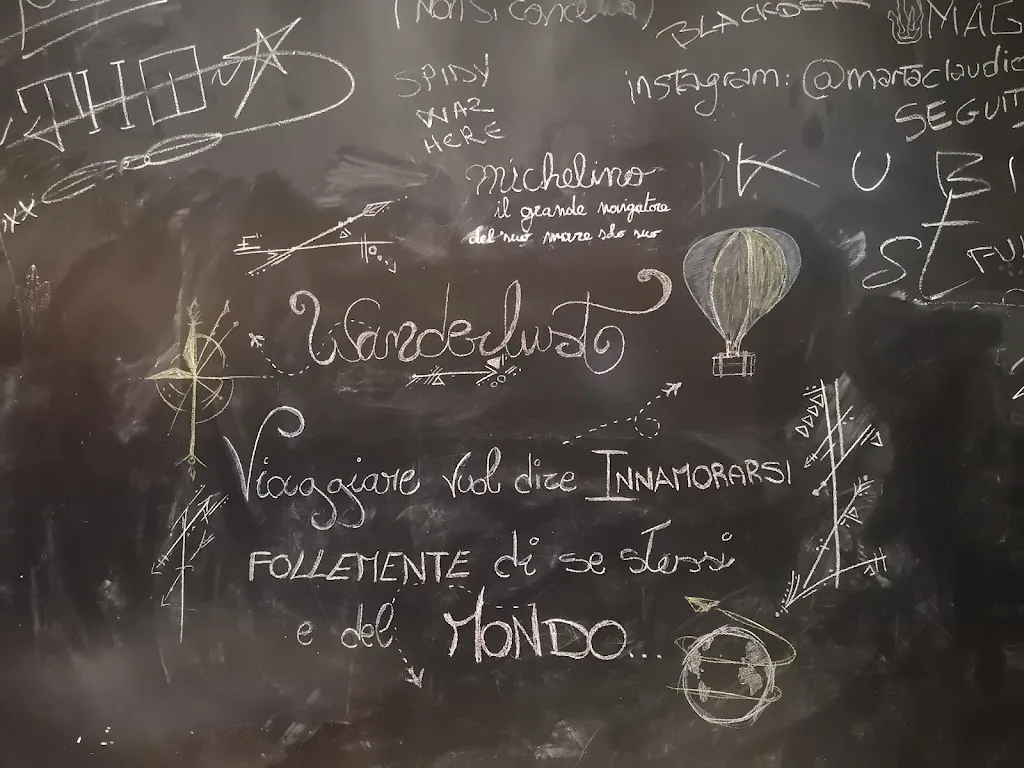 (NON SI CANCELLA)
BLACKDE
MAG
SPIDY
WAZ
HERE
instagram: @martaclaudio
SEGUIT
michelino
il grande navigatore
del suo mare solo suo
KUBI
Wanderlust
Viaggiare vuol dire INNAMORARSI
FOLLEMENTE di se stessi
e del MONDO...